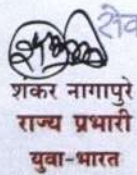 सेव
शंकर नागापुरे
राज्य प्रभारी
युवा-भारत